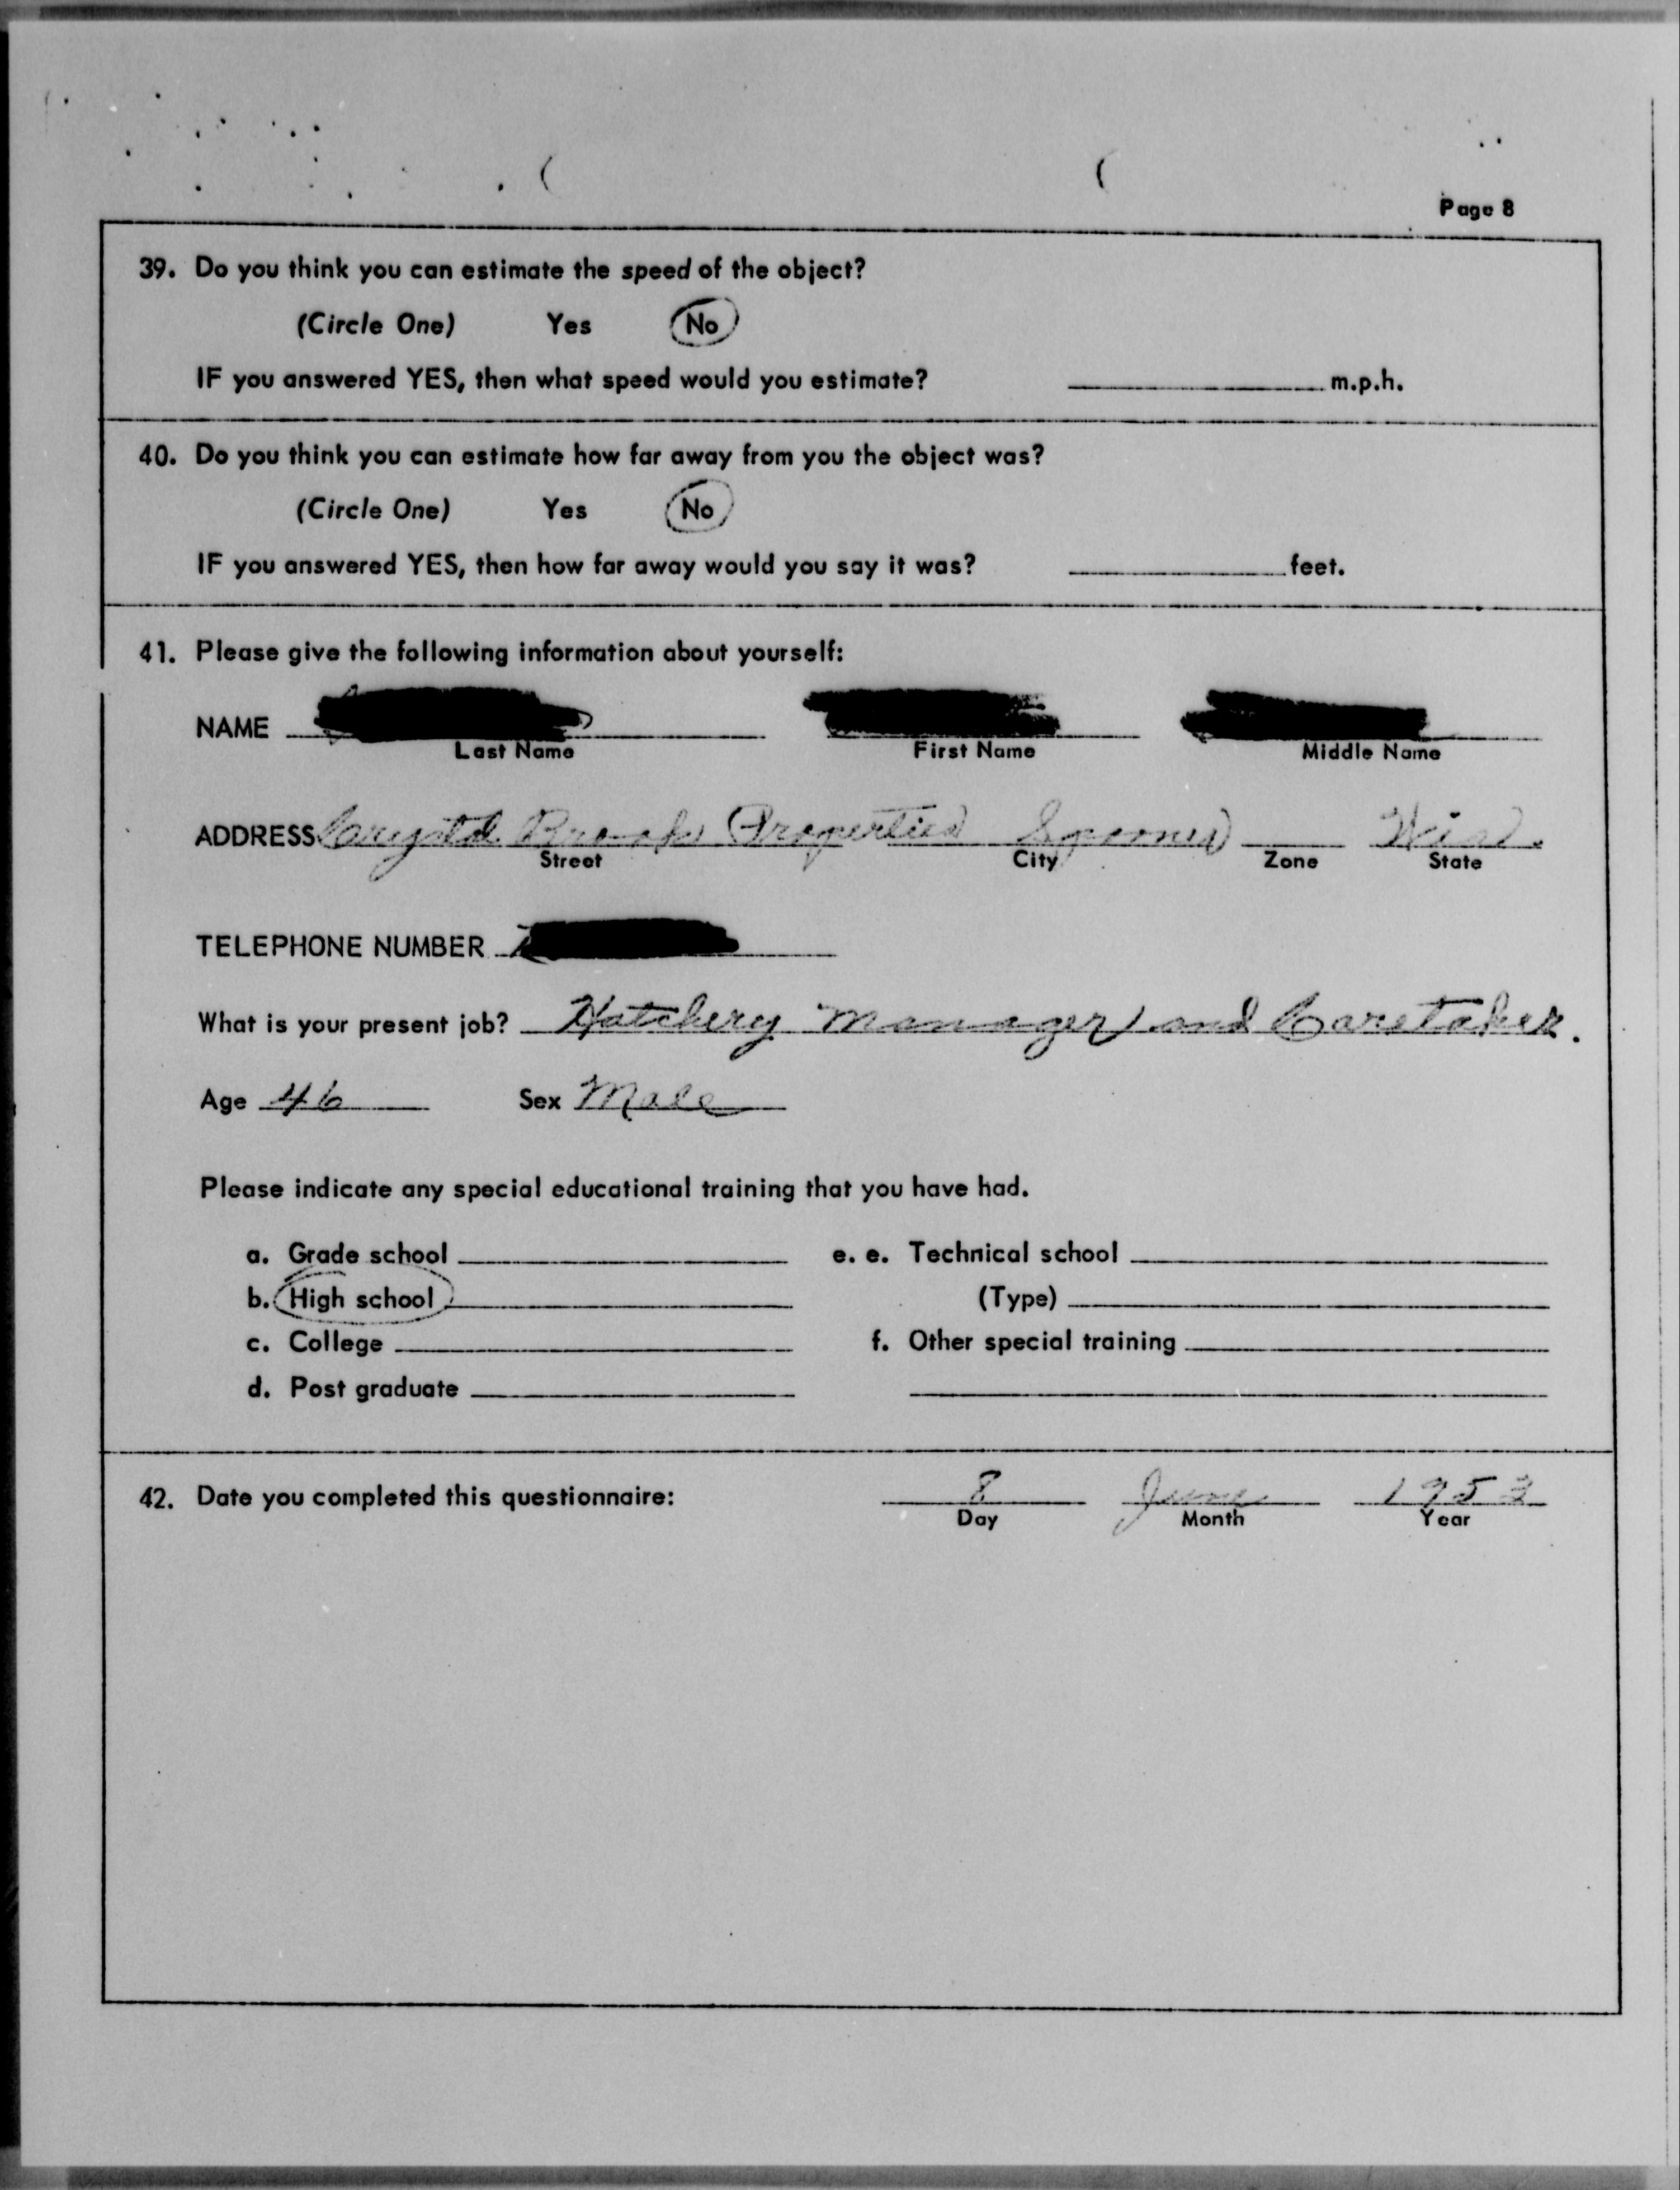 Page 8
39. Do you think you can estimate the speed of the object?
(Circle One) Yes No
IF you answered YES, then what speed would you estimate? m.p.h.
40. Do you think you can estimate how far away from you the object was?
(Circle One) Yes No
IF you answered YES, then how far away would you say it was? feet.
41. Please give the following information about yourself:
NAME
Last Name First Name Middle Name
ADDRESS Crystal Brook Properties Spooner Wis.
Street City Zone State
TELEPHONE NUMBER
What is your present job? Hatchery Manager and Caretaker.
Age 46 Sex Male
Please indicate any special educational training that you have had.
a. Grade school e. e. Technical school
b. High school (Type)
c. College f. Other special training
d. Post graduate
42. Date you completed this questionnaire: 8 June
Day Month Year